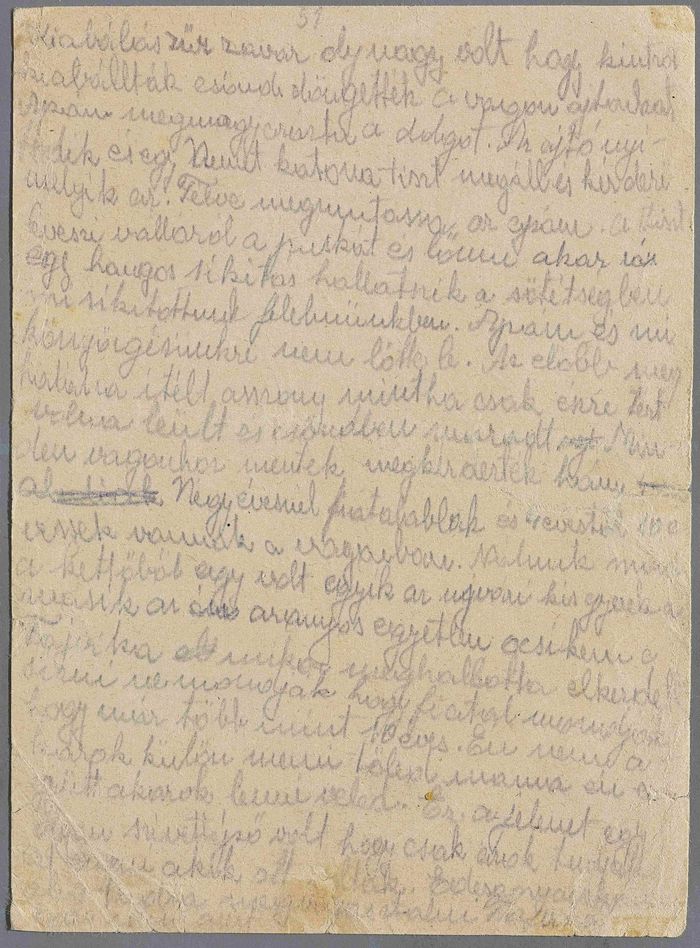 51
Kiabálás zűr zavar oly nagy volt hogy kintről
kiabálták csönd döngették a vagon ajtónkat
Apám megmagyarázta a dolgot. Az ajtó nyi-
lódik és egy Német katona tiszt megáll és kérdezi
melyik az! Félve megmutassa az apám. A tiszt
leveszi válláról a puskát és lőnni akar rá
egy hangos sikitás hallatnik a sötétségben
mi sikitottunk félelmünkben. Apám és mi
könyörgésünkre nem lőtte le. Az előbb még
halálra itélt asszony mintha csak észre tért
volna leült és csöndben maradt. Min-
den vagonhoz mentek megkérdezték hány
Négyévesnél fiatalabbak és
évesek vannak a vagonban. Nálunk mind
a kettőből egy volt egyik az ugvari kis gyerek a
másik az aranyos egyetlen öcsikém a
Tojszika mikor meghallotta elkezdett
sirni ne mondják hogy fiatal mondják
hogy már több mint 10 éves. Én nem a-
karok külön menni tőled mama én
együtt akarok lenni veled. Ez a jelenet egy
olyan szivettépő volt hogy csak azok tudják
akik ott voltak. Édesanyám